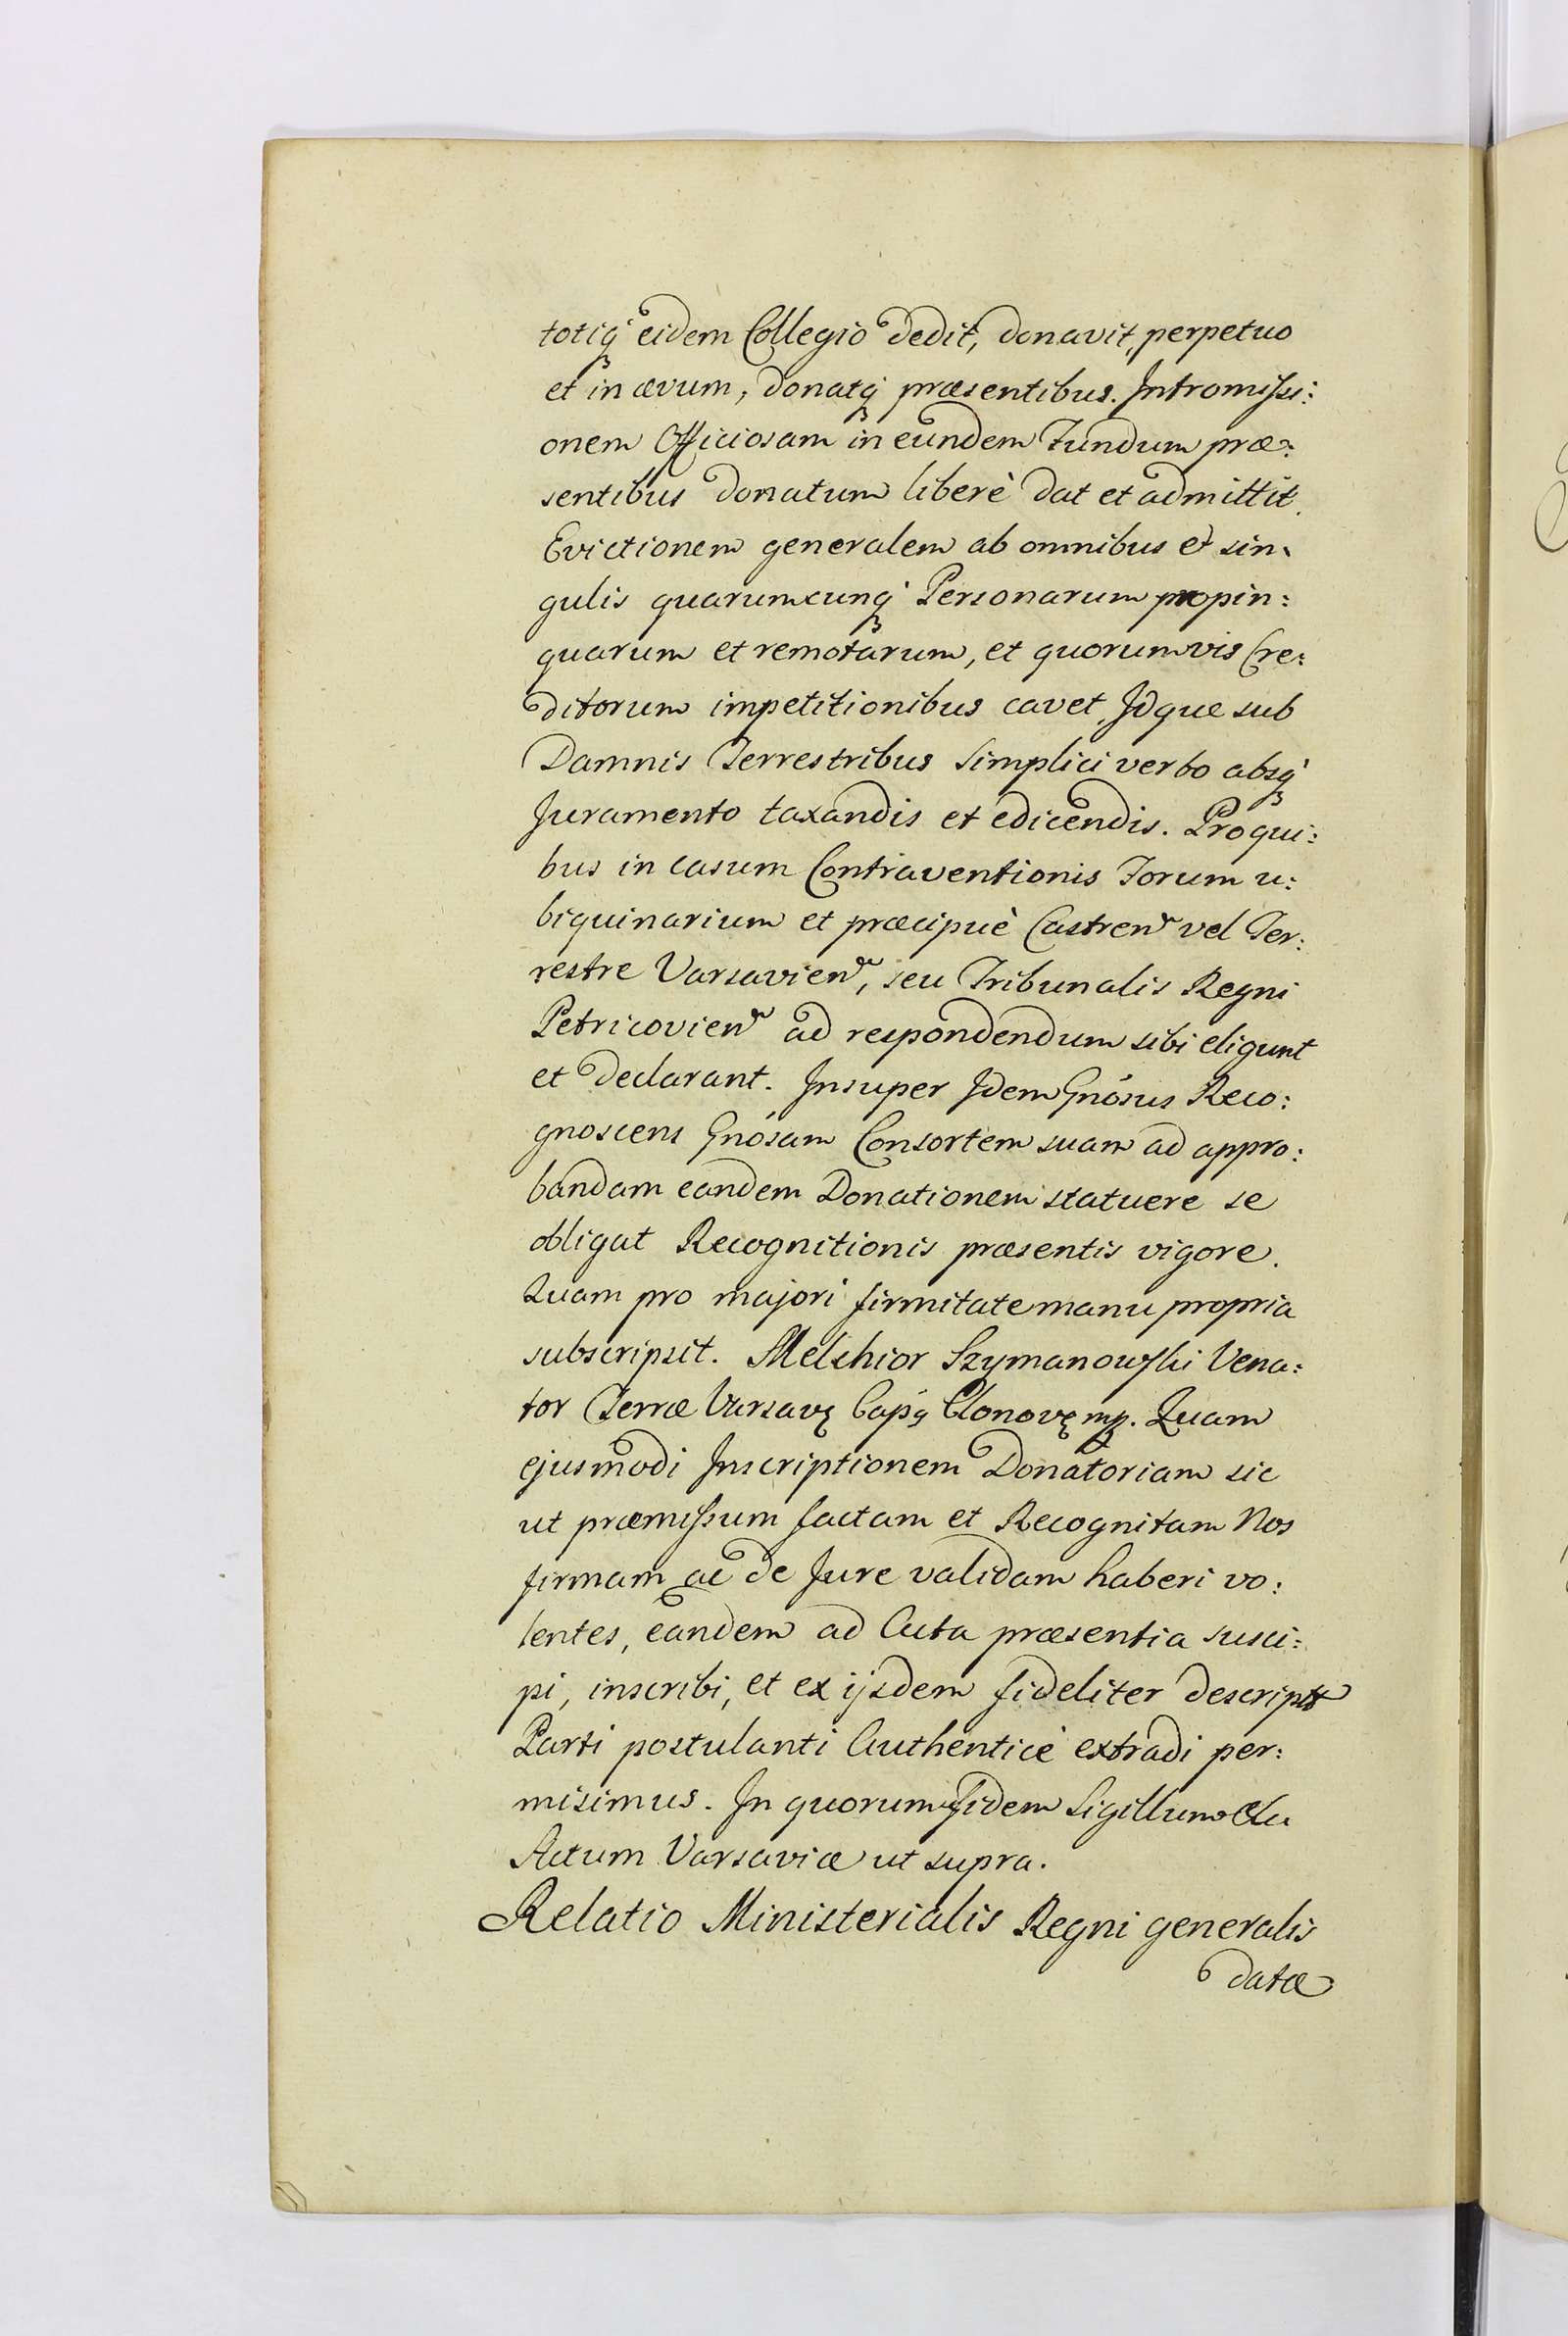 totiq́ eidem Collegio dedit, donavit, perpetuo
et in ævum, donatq́ præsentibus. Intromissi:
onem Officiosam in eundem Fundum præ:
sentibus donatum liberè dat et admittit.
Evictionem generalem ab omnibus et sin:
gulis quarumcunq́ Personarum propin:
quarum et remotarum, et quorumvis Cre:
ditorum impetitionibus cavet, Idque sub
Damnis Terrestribus simplici verbo absq́
Juramento taxandis et edicendis. Pro qui:
bus in casum Contraventionis Forum u:
biquinarium et præcipuè Castren vel Ter:
restre Varsavien, seu Tribunalis Regni
Petricovien ad respondendum sibi eligunt
et declarant. Insuper Idem Gnósus Reco:
gnoscens Gnósam Consortem suam ad appro:
bandam eandem Donationem statuere se
obligat Recognitionis præsentis vigore.
Quam pro majori firmitate manu propria
subscripsit. Melchior Szymanowski Vena:
tor Terræ Varsavę Capś Clonovę mp. Quam
ejusmodi Inscriptionem Donatoriam sic
ut præmissum factam et Recognitam Nos
firmam ac de Jure validam haberi vo:
lentes, eandem ad Acta præsentia susci:
pi, inscribi, et ex ijsdem fideliter descript
Parti postulanti Authenticè extradi per:
misimus. In quorum fidem Sigillum
Actum Varsaviæ ut supra.
Relatio Ministerialis Regni generalis
datæ